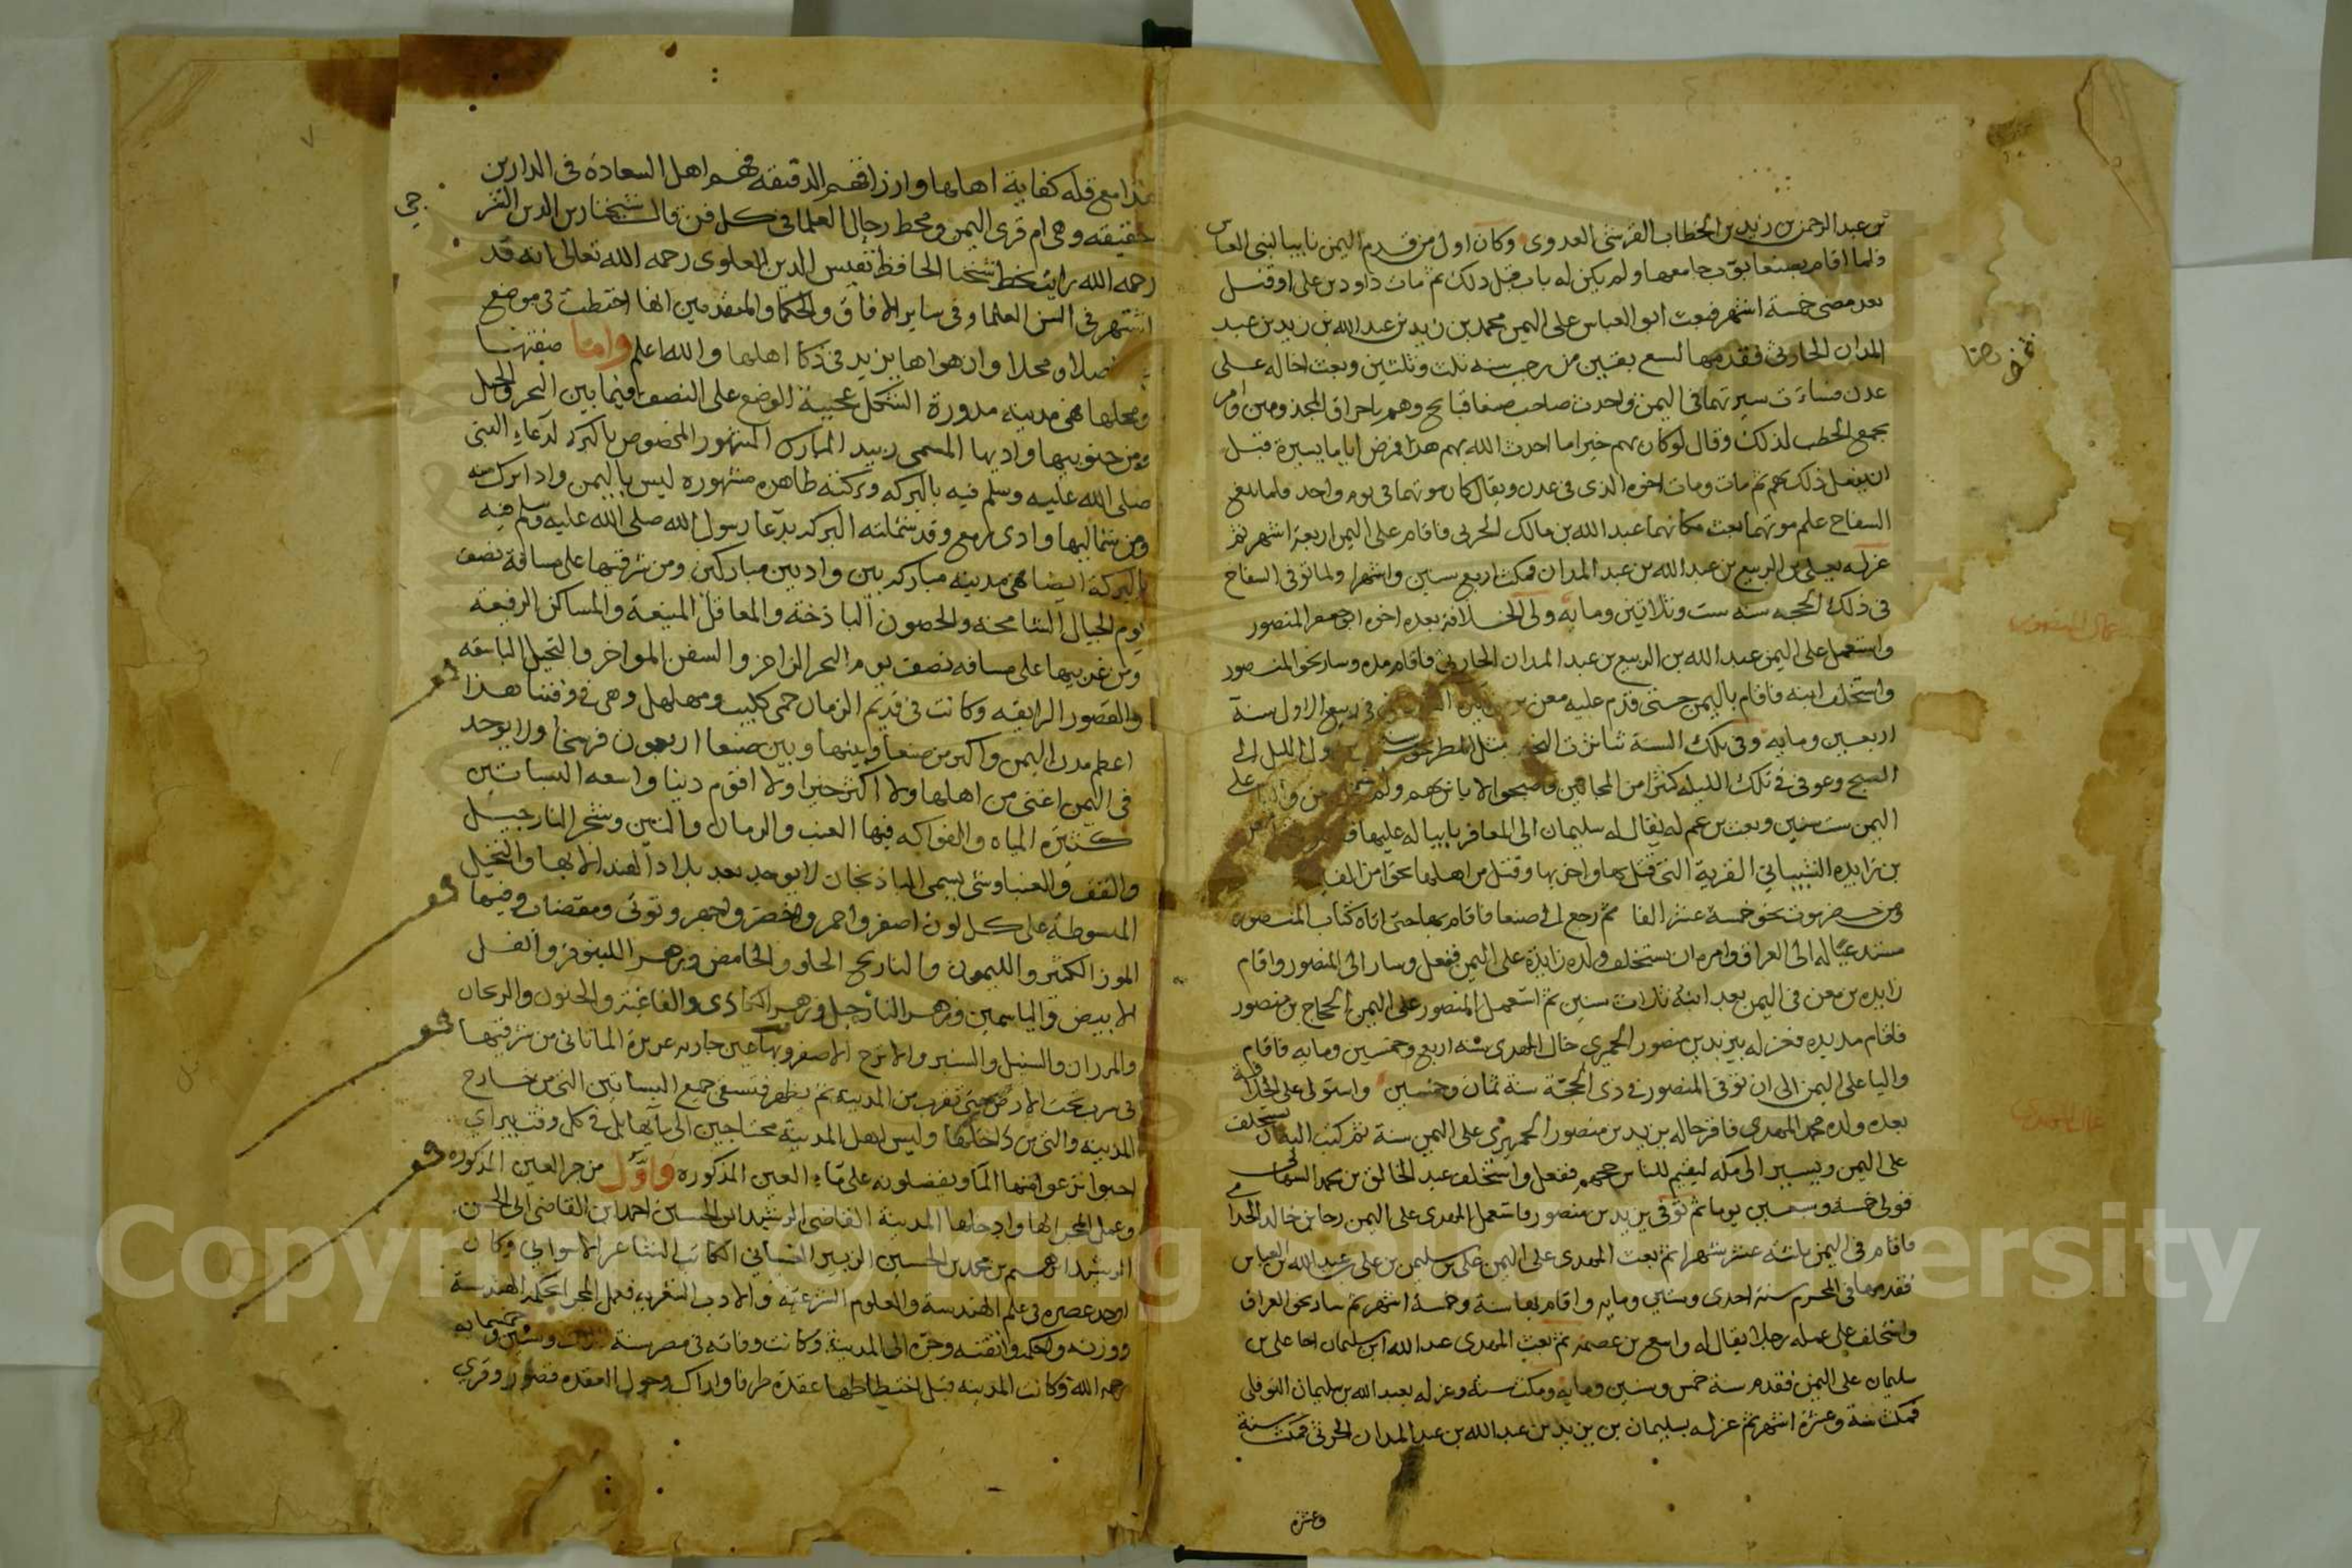 بن عبد الرحمن بن زيد بن الخطاب القرشي العدوي وكان اول من قدم اليمن نايبا لبني العباس
ولما اقام بصنعا بوب جامعها ولم يكن له باب قبل ذلك ثم مات داود بن علي او قتل
بعد مضى خمسة اشهر فبعث ابو العباس على اليمن محمد بن زيد بن عبد الله بن زيد بن عبد
المدان الحارثي فقدمها لسبع بقين من رجب سنه ثلث وثلثين وبعث اخا له على
عدن فساءت سيرتهما في اليمن واحدث صاحب صنعا قبايح وهم باحراق المجذومين وامر
بجمع الحطب لذلك وقال لو كان بهم خيرا ما احدث الله بهم هذا فمرض اياما يسيرة قبل
ان يفعل ذلك بهم ثم مات ومات اخوه الذي في عدن ويقال كان موتهما في يوم واحد فلما بلغ
السفاح علم موتهما بعث مكانهما عبد الله بن مالك الحرثي فاقام على اليمن اربعة اشهر ثم
عزله بعلى بن الربيع بن عبد الله بن عبد المدان فمكث اربع سنين واشهرا ولما توفي السفاح
في ذلك الحجه سنه ست وثلاثين ومايه ولي الخلافة بعده اخوه ابو جعفر المنصور
واستعمل على اليمن عبد الله بن الربيع بن عبد المدان الحارثي فاقام مده وسار نحو المنصور
واستخلف ابنه فاقام باليمن حتى قدم عليه معن بن في ربيع الاول سنة
اربعين ومايه وفي تلك السنة تناثرت النجوم مثل المطر من اول الليل الى
الصبح وعوفي في تلك الليله كثيرا من المجانين واصبحوا لا باس بهم ولم
اليمن ست سنين وبعث بن عم له يقال له سليمان الى المعافر نايبا له عليها
بن زايده الشيباني القرية التي قتل بها واخربها وقتل من اهلها نحوا من الفين
ومن حضرموت نحو خمسة عشر الفا ثم رجع الى صنعا فاقام بها حتى اتاه كتاب المنصور
مستدعيا له الى العراق وامره ان يستخلف ولده زايدة على اليمن ففعل وسار الى المنصور واقام
زايده بن معن في اليمن بعد ابيه ثلاث سنين ثم استعمل المنصور على اليمن الحجاج بن منصور
فاقام مديده فعزله بيزيد بن منصور الحميري خال المهدي سنه اربع وخمسين ومايه فاقام
واليا على اليمن الى ان توفي المنصور في ذي الحجة سنة ثمان وخمسين واستولى على الخلافة
بعده ولده محمد المهدي فاقر خاله يزيد بن منصور الحميري على اليمن سنة ثم كتب اليه ان يستخلف
على اليمن ويسير الى مكه ليقيم للناس حجهم ففعل واستخلف عبد الخالق بن محمد الشهابي
فولي خمسة وسبعين يوما ثم توفي يزيد بن منصور فاستعمل المهدي على اليمن رجا بن خالد الجذامي
فاقام في اليمن ثلثة عشر شهرا ثم بعث المهدي على اليمن علي بن سليمن بن علي بن عبد الله بن العباس
فقدمها في المحرم سنة احدى وستين ومايه واقام بها سنة وخمسة اشهر ثم سار نحو العراق
واستخلف على عمله رجلا يقال له واسع بن عصمه ثم بعث المهدي عبد الله ابن سليمان اخا علي بن
سليمان على اليمن فقدم سنة خمس وستين ومايه ومكث سنه وعزله بعبد الله بن سليمان النوفلي
فمكث سنة وعشرة اشهر ثم عزله بسليمان بن يزيد بن عبد الله بن عبد المدان الحرثي فمكث سنة
وعشره
عمال المنصور
عمال المهدي
هذا مع قله كفاية اهلها وارزاقهم الدقيقه فهم اهل السعادة في الدارين
حقيقه وهي ام قرى اليمن ومحط رحال العلما في كل فن قال شيخنا زين الدين الشر
جي
رحمه الله رايت بخط شيخنا الحافظ نفيس الدين العلوي رحمه الله تعالى انه قد
اشتهر في السن العلما وفي ساير الافاق والحكما والمتقدمين انها اختطت في موضع
فضلا ومحلا وان هواها يزيد في ذكا اهلها والله اعلم واما صفتها
ومحلها فهي مدينه مدورة الشكل عجيبة الوضع على النصف فيما بين البحر والجبل
ومن جنوبيها واديها المسمى زبيد المبارك المشهور المخصوص بالبركه لدعاء النبي
صلى الله عليه وسلم فيه بالبركه وبركته ظاهره مشهوره ليس باليمن واد ابرك منه
ومن شماليها وادي رمع وقد شملته البركه بدعا رسول الله صلى الله عليه وسلم فيه
بالبركة ايضا فهي مدينه مباركه بين واديين مباركين ومن شرقيها على مسافة نصف
يوم الجبال الشامخه والحصون الباذخة والمعاقل المنيعة والمساكن الرفيعه
ومن غربيها على مسافه نصف يوم البحر الزاخر والسفن المواخر والنخيل الباسقه
والقصور الرايقه وكانت في قديم الزمان حمى كليب ومهلهل وهي في وقتنا هذا
اعظم مدن اليمن واكبر من صنعا وبينها وبين صنعا اربعون فرسخا ولا يوجد
في اليمن اغنى من اهلها ولا اكثر خيرا ولا اقوم دينا واسعه البساتين
كثيره المياه والفواكه فيها العنب والرمان والتين وشجر النارجيل
والقف والعنبا وشي يسمى الباذنجان لا يوجد بعد بلاد الهند الا بها والنخيل
المبسوطة على كل لون اصفر واحمر واخضر وفيها
الموز الكثير والليمون والنارنج الحلو والحامض وزهر اللينوفر والفل
الابيض والياسمين وزهر النارجيل وزهر الكاذي والفاغية والحنون والريحان
والسنبل والاترج الاصفر وبها عين جاريه من شرقيها
في سرب تحت الارض حتى تقرب من المدينه ثم يظهر فتسقي جميع البساتين التي من خارج
المدينه والتي من داخلها وليس اهل المدينة محتاجين الى مآيها بل في كل وقت
احبوا نزعوا منها الما ويفضلونه على ماء العين المذكوره واول من جر العين المذكوره
وعمل المجرى لها وادخلها المدينة القاضي الرشيد ابن الحسين احمد ابن القاضي ابي الحسن
الرشيد ابرهيم بن محمد بن الحسين الزبير الغساني الكاتب الشاعر الاسواني وكان
اوحد عصره في علم الهندسة والعلوم الشرعيه والادب الشعريه فعمل المجرى بحكمه الهندسة
ووزنه واحكمه واتقنه وجره الى المدينة وكانت وفاته في مصر سنة ثلث وستين وخمسمايه
رحمه الله وكانت المدينه قبل اختطاطها عقدة طرفا واراك وحول العقده قصور وقرى